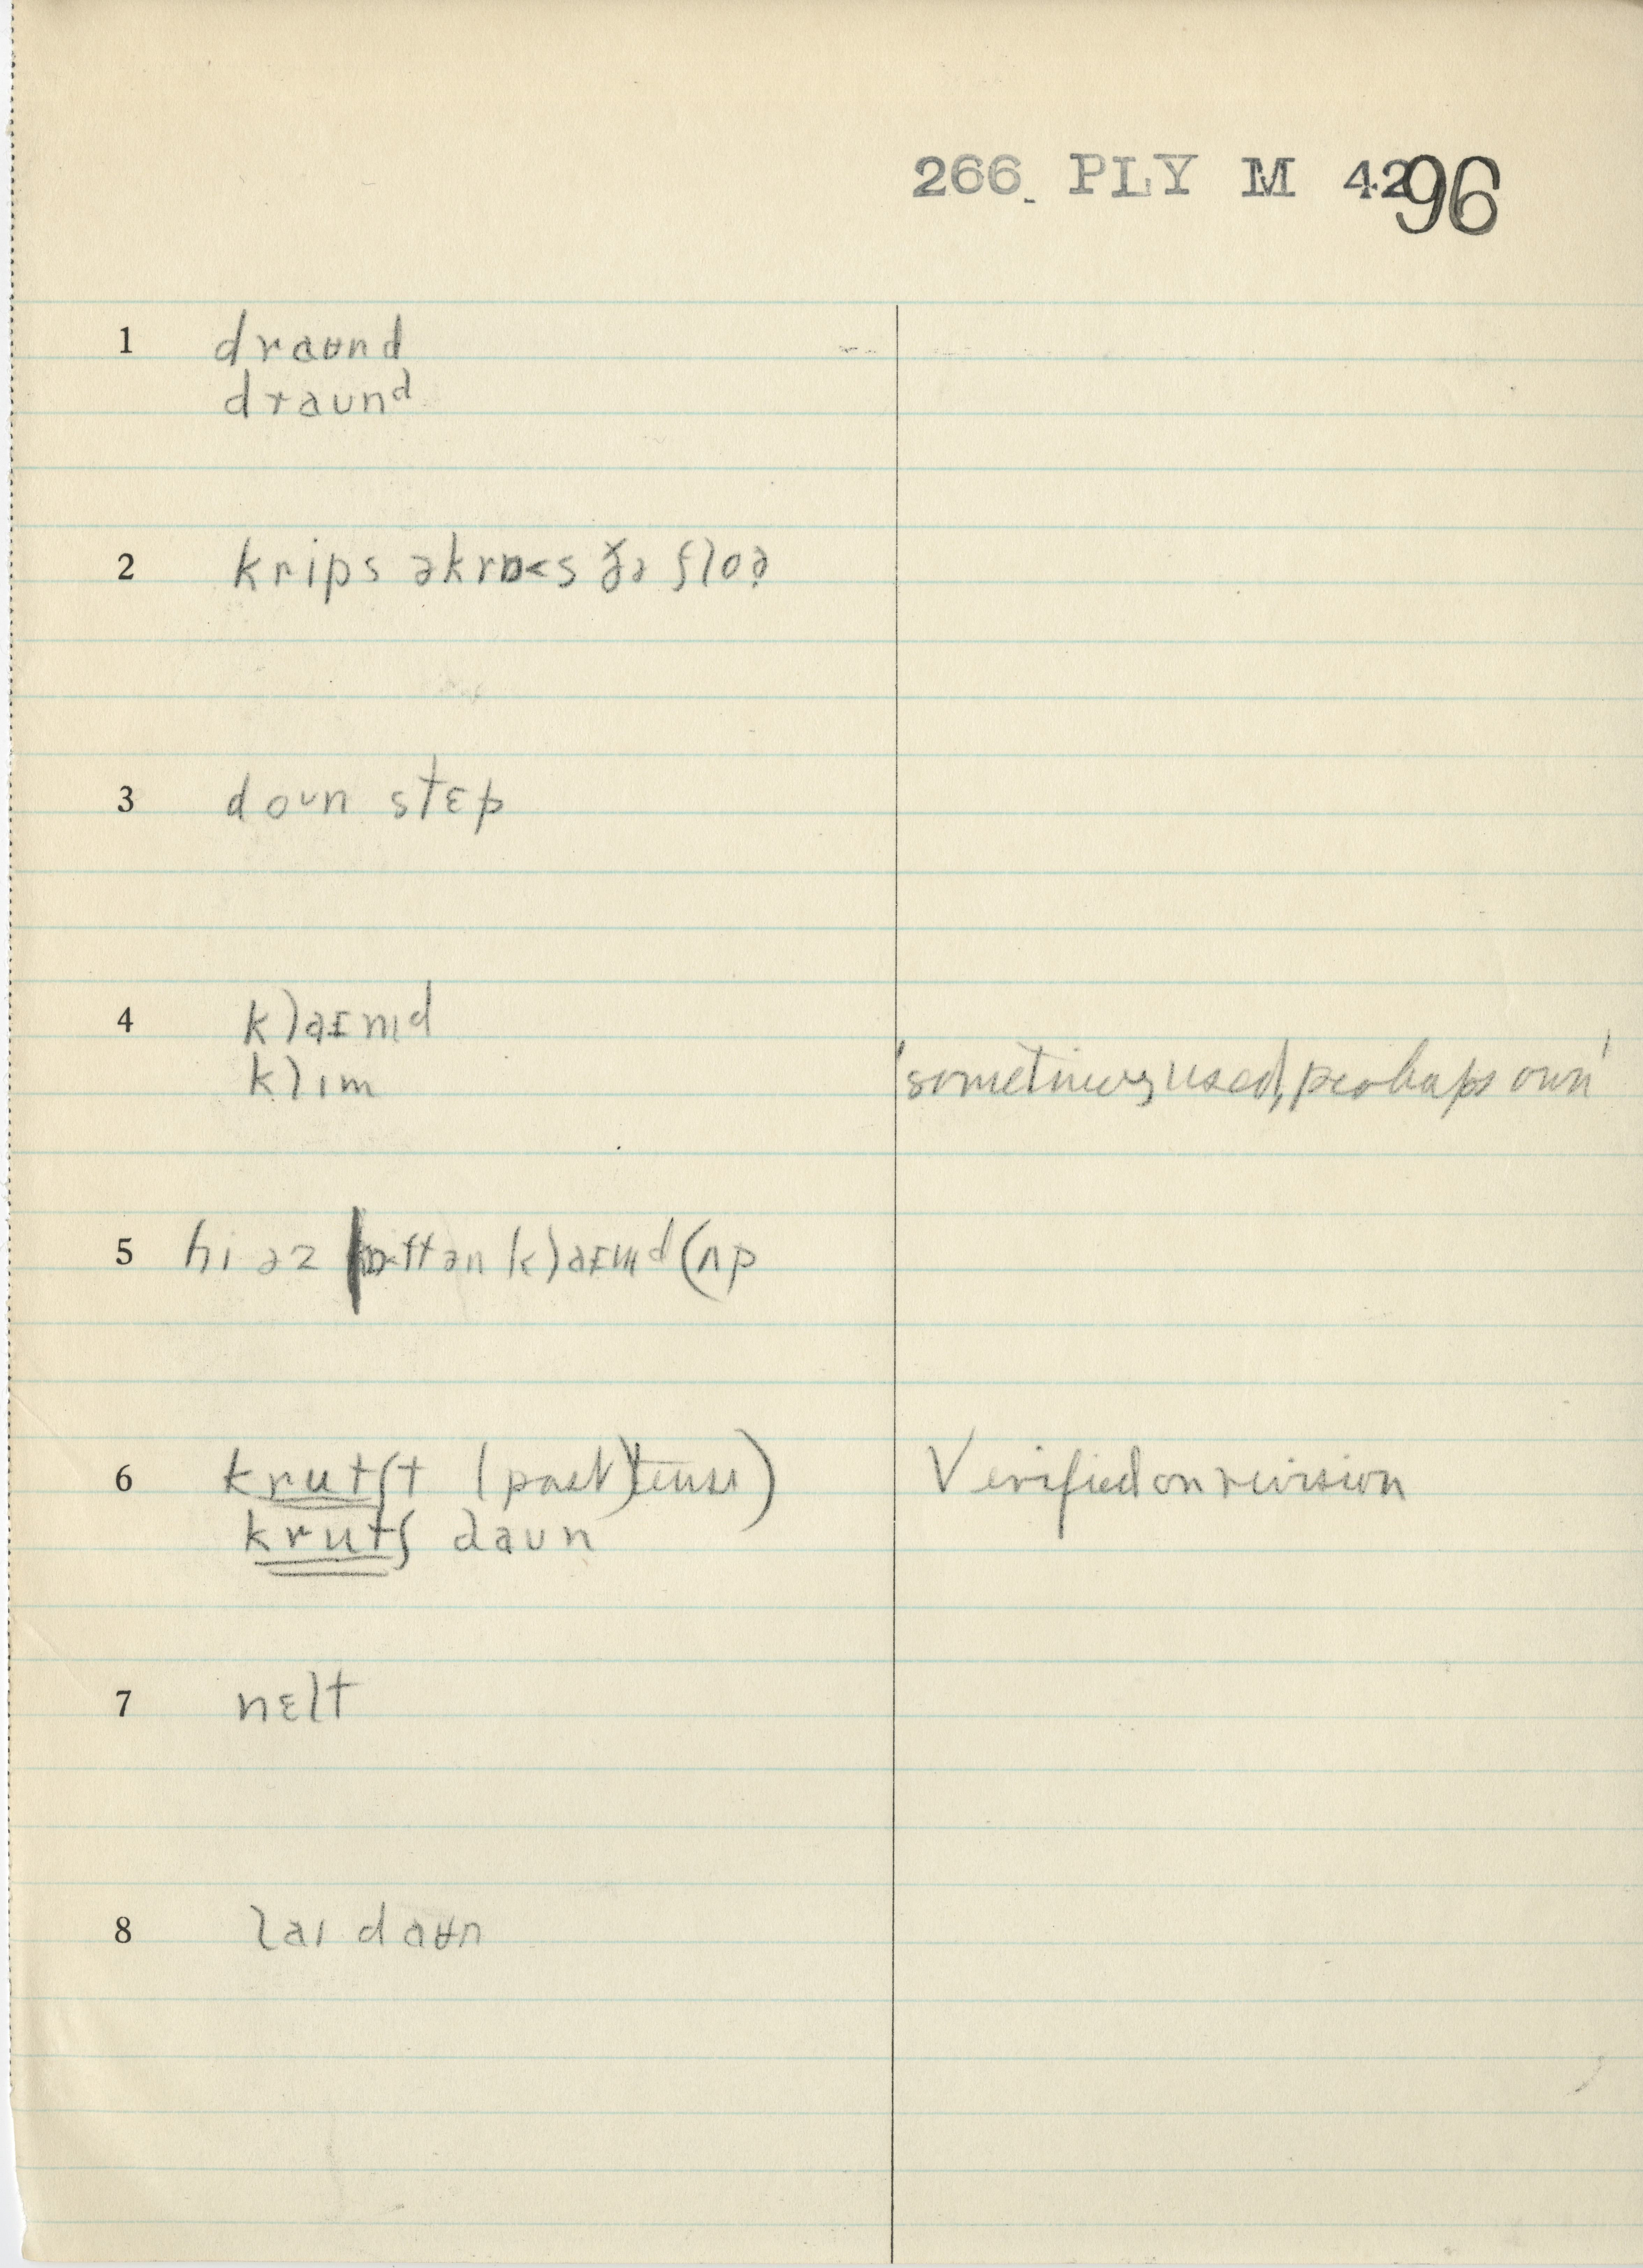 266 PLY M 42 96
1 draʉnd
draund
2 krips əkrɒ<s ðə floə̯
3 doun stɛp
4 klaɪmd
klɪm 'sometimes used, perhaps own'
5 hi əz ən klaɪmd (ʌp
6 krutʃt (past) tense) Verified on revision
krutʃ daun
7 nɛlt
8 laɪ daʉn